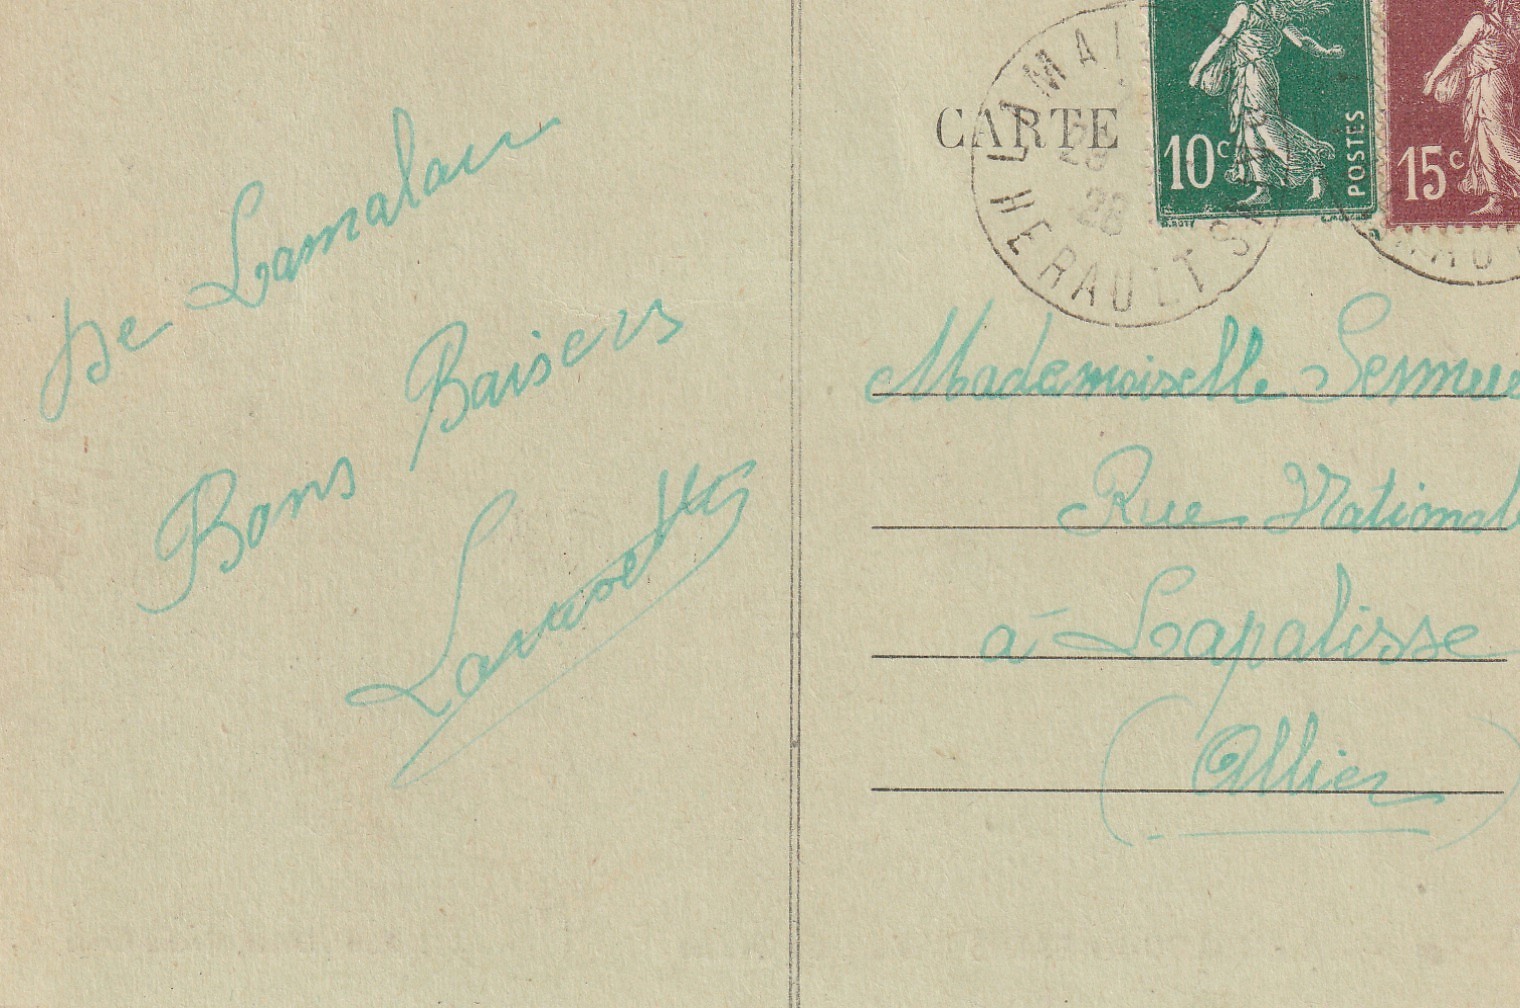 De Lamalou
Bons Baisers
CARTE
LAMAL
HERAULT
28
10c
POSTES
15c
Mademoiselle
Rue National
à Lapalisse
(Allier)